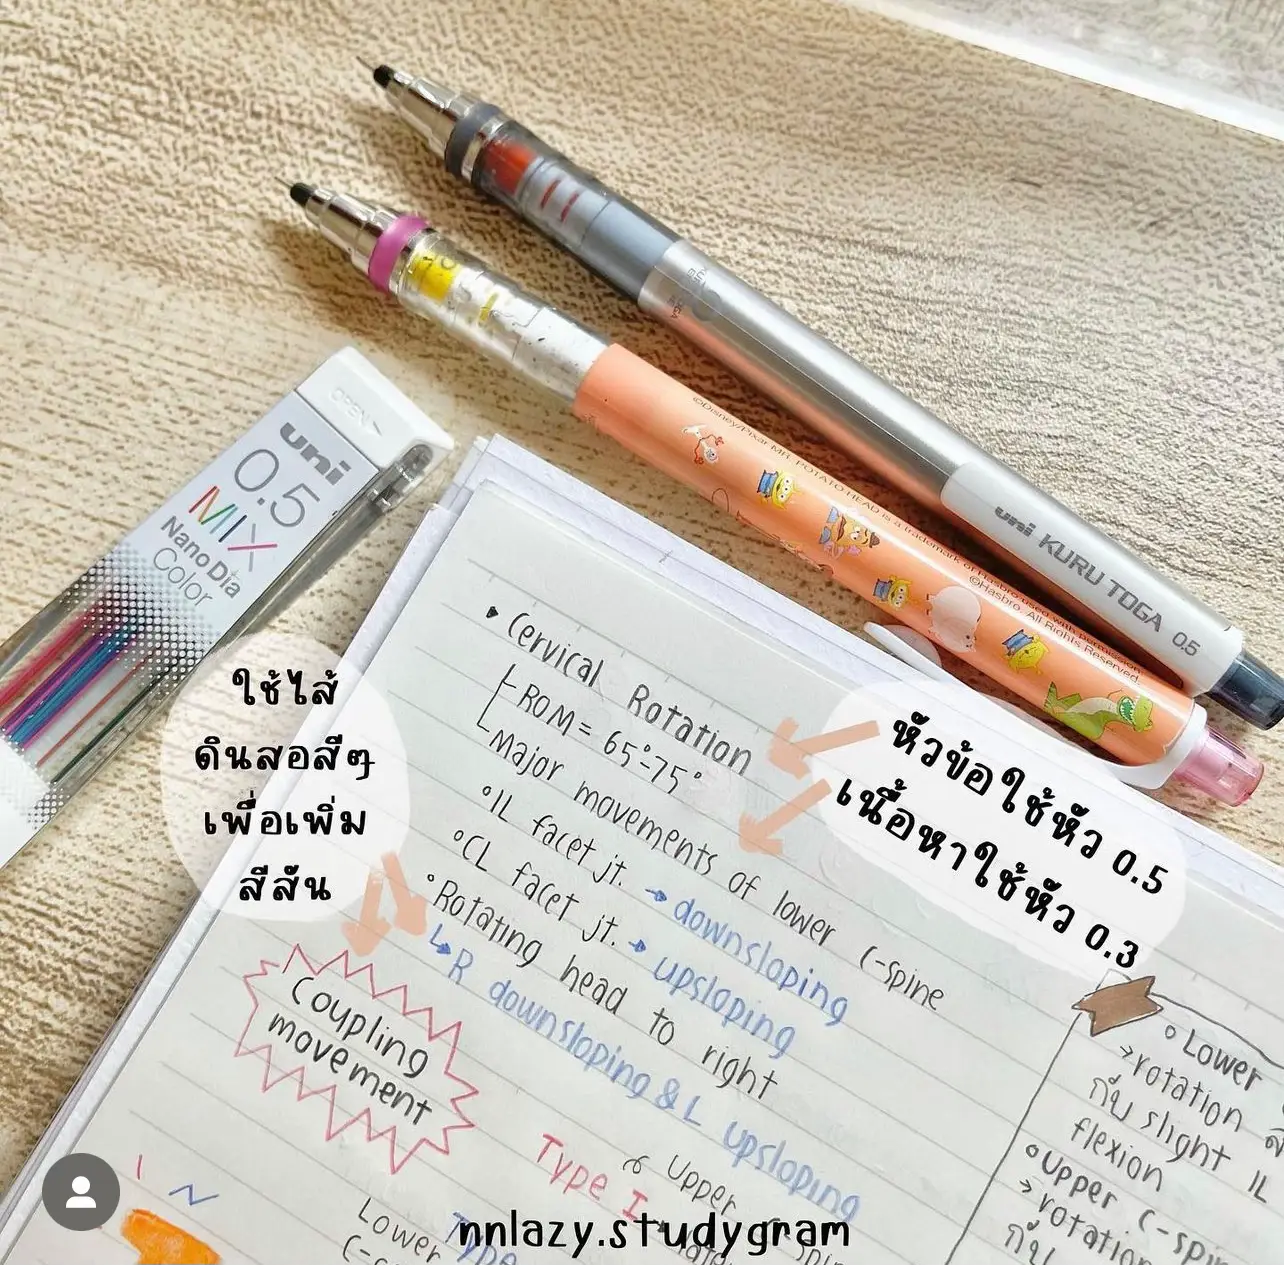 uni
KURU TOGA
©Disney/Pixar MR. POTATO HEAD is a trademark of Hasbro used with permission.
©Hasbro. All Rights Reserved.
uni KURU TOGA 0.5
OPEN
uni
0.5
MIX
Nano Dia
Color
ใช้ไส้
ดินสอสีๆ
เพื่อเพิ่ม
สีสัน
หัวข้อใช้หัว 0.5
เนื้อหาใช้หัว 0.3
Cervical Rotation
ROM = 65°-75°
Major movements of lower C-spine
°IL facet jt. → downsloping
°CL facet jt. → upsloping
°Rotating head to right
↳ R downsloping & L upsloping
Coupling
movement
Type I
Upper C-spine
Lower
Type
°Lower
>rotation
กับ slight IL
flexion
°Upper C-spin
>rotation
กับ
nnlazy.studygram